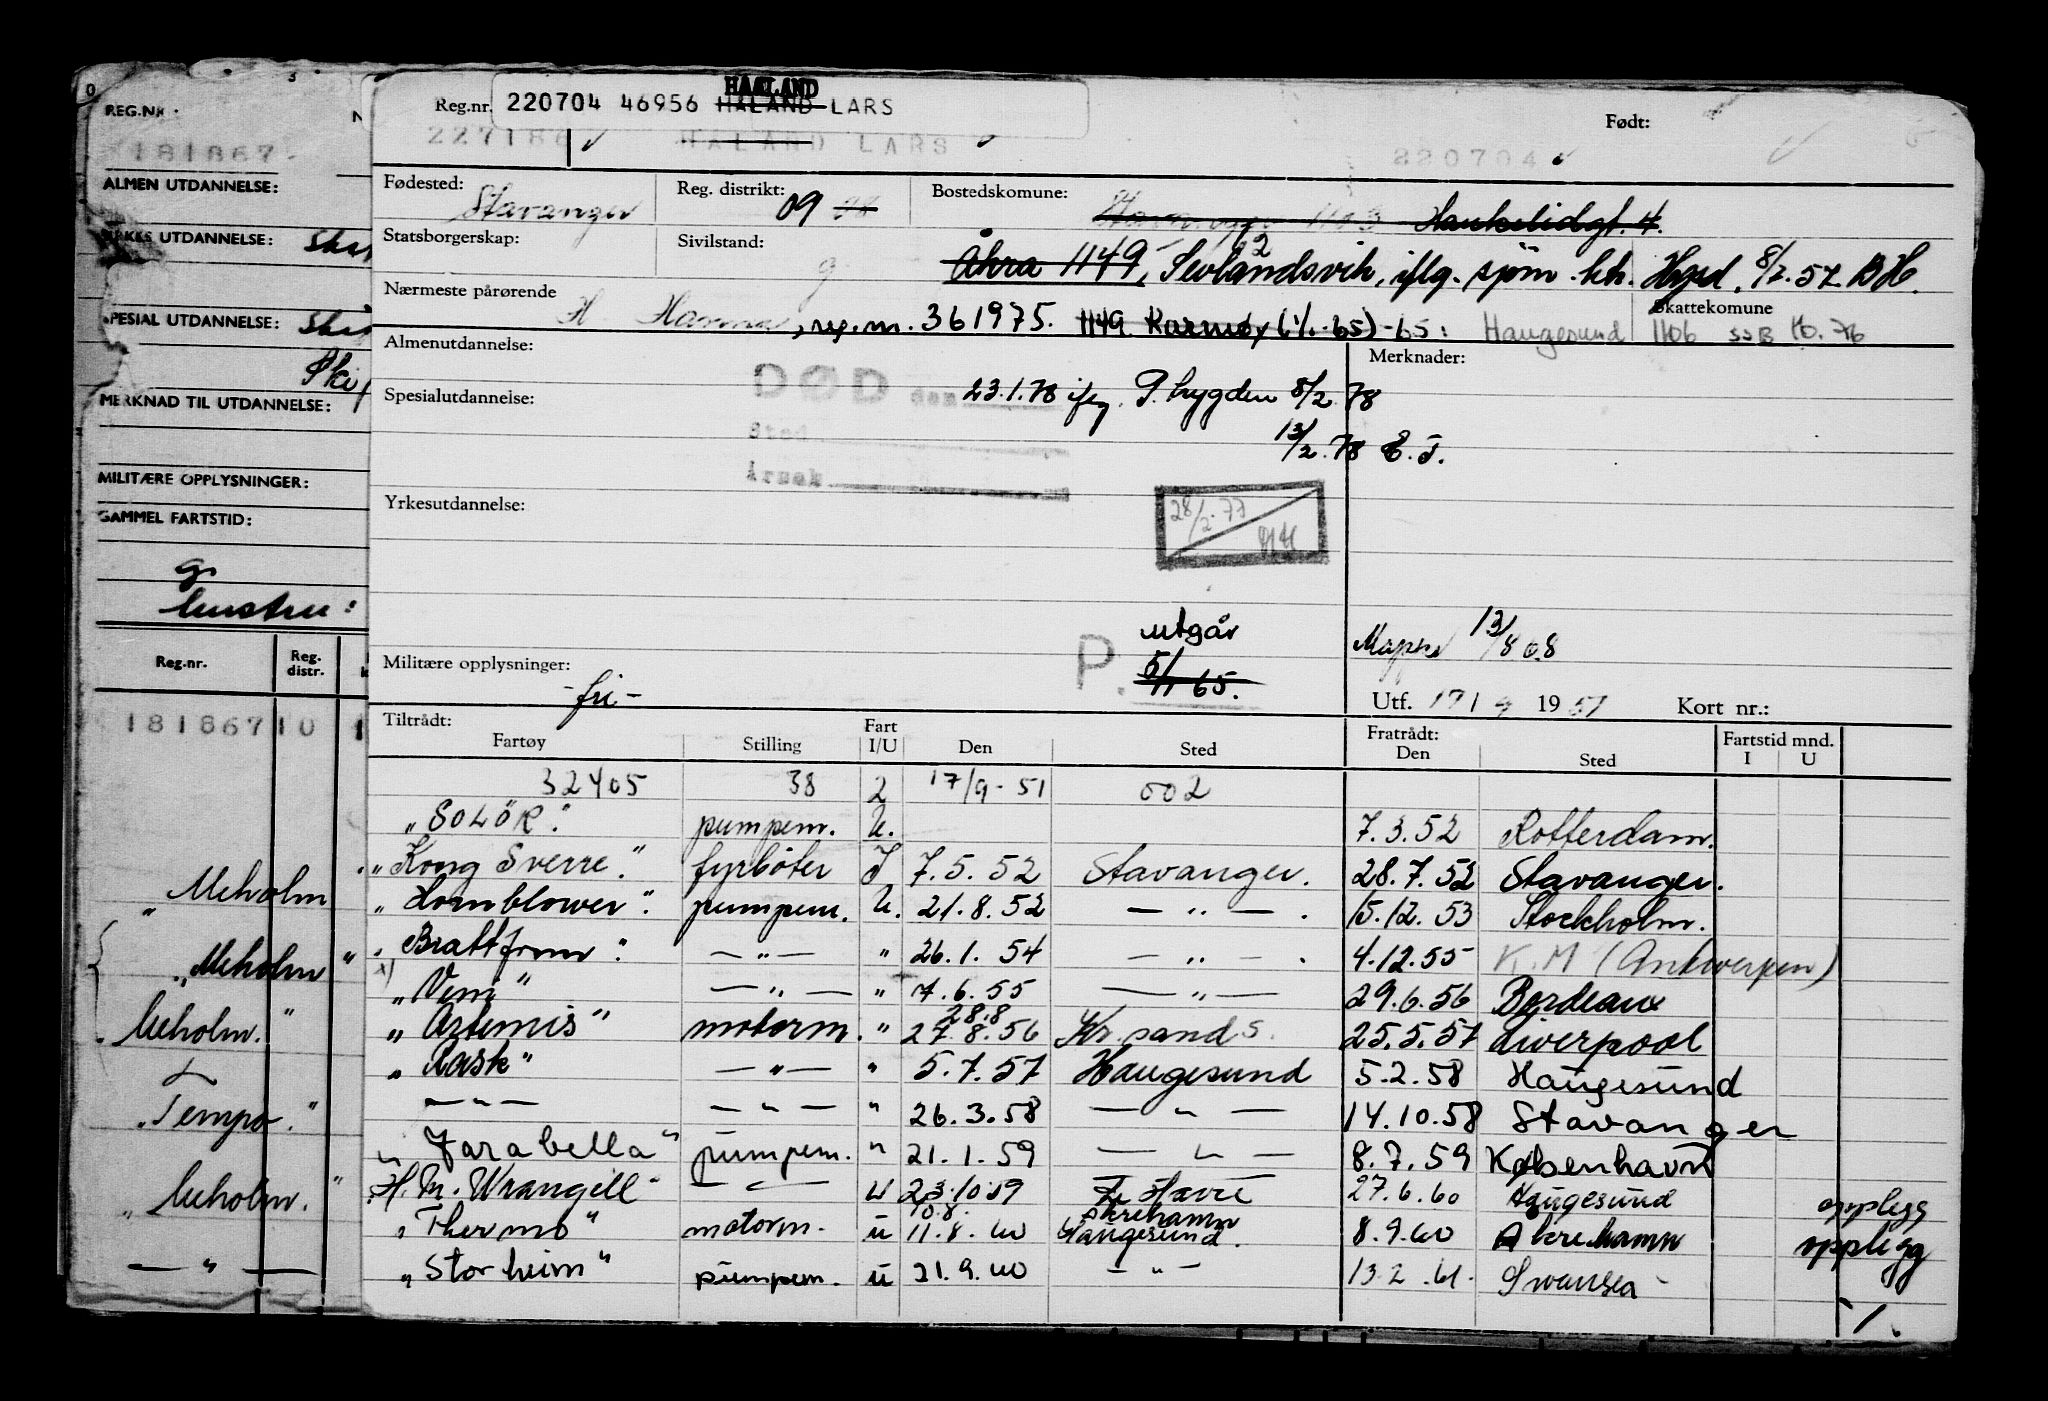 HAALAND
Reg.nr. 220704 46956 HÅLAND LARS
Født:
227186 HÅLAND LARS 220704
Fødested: Stavanger
Reg. distrikt: 09
Bostedskomune: Stavanger 1103 Haukelidgt. 4.
Statsborgerskap:
Sivilstand: g
Åkra 1149, Sevlandsvik, iflg. sjøm. ktr. Hgsd. 8/7.57 BH.
Nærmeste pårørende
H Hanna, reg.nr. 361975. 1149 Karmøy (1/1-65) -65: Haugesund
Skattekomune
1106 SSB 10.76
Almenutdannelse:
Merknader:
DØD den 23.1.78 ifg. P. bygden 8/2.78
Spesialutdannelse:
Sted
13/2.78 E.J.
Årsak
Yrkesutdannelse:
28/2.77
utgår
5/11 65.
P.
13/8 68
Militære opplysninger: -fri-
Utf. 17/9 1951 Kort nr.:
Tiltrådt:
Fartøy Stilling Fart I/U Den Sted
Fratrådt: Den Sted Fartstid mnd. I U
32405 38 2 17/9-51 002
"SOLÖR". pumpem. U. 7.3.52 Rotterdam.
"Kong Sverre". fyrbøter I 7.5.52 Stavanger. 28.7.52 Stavanger.
"Hornblower". pumpem. U. 21.8.52 — " — . 15.12.53 Stockholm.
"Brattfonn". — " — " 26.1.54 — " — . 4.12.55 K.M (Antwerpen)
x) "Veni" — " — " 7.6.55 — " — 29.6.56 Bordeaux
28.8
"Artemis" motorm. " 27.8.56 Kr.sand S. 25.5.57 Liverpool
"Rask" — " — " 5.7.57 Haugesund 5.2.58 Haugesund
— " — — " — " 26.3.58 — " — 14.10.58 Stavanger
"Farabella" pumpem. " 21.1.59 — " — 8.7.59 København
"H.M. Wrangell" — " — U 23.10.59 Le Havre 27.6.60 Haugesund opplegg
10.8. Åkrehamn
"Thermo" motorm. U 11.8.60 Haugesund. 8.9.60 Åkrehamn opplegg
"Storheim" pumpem. U 21.9.60 — " — 13.2.61. Swansea
REG.NR.
181867
ALMEN UTDANNELSE:
YRKES UTDANNELSE:
SPESIAL UTDANNELSE:
MERKNAD TIL UTDANNELSE:
MILITÆRE OPPLYSNINGER:
GAMMEL FARTSTID:
g
hustru:
Reg.nr. Reg. distr.
181867 10 1
"Meholm
"Meholm"
Meholm."
"Tempo."
"Meholm."
— " —